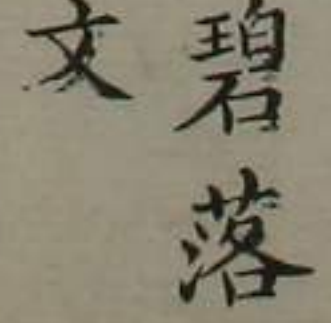 碧落
文